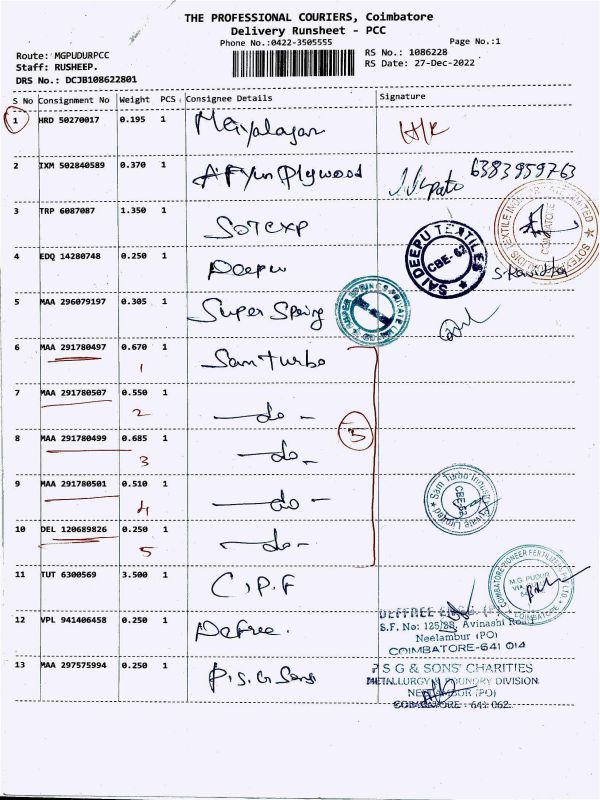 THE PROFESSIONAL COURIERS, Coimbatore
Delivery Runsheet - PCC
Phone No.:0422-3505555 Page No.:1
Route: MGPUDURPCC RS No.: 1086228
Staff: RUSHEEP. RS Date: 27-Dec-2022
DRS No.: DCJB108622801
S No Consignment No Weight PCS Consignee Details Signature
1 HRD 50270017 0.195 1
2 IXM 502840589 0.370 1 Plywood 6383959763
3 TRP 6087087 1.350 1
SAI DEEPU TEXTILES CBE-62
4 EDQ 14280748 0.250 1 Deepu
5 MAA 296079197 0.305 1 Super Spring
6 MAA 291780497 0.670 1 Sam Turbo
1
7 MAA 291780507 0.550 1 -do-
2
8 MAA 291780499 0.685 1 -do-
3 5
9 MAA 291780501 0.510 1 -do-
4
10 DEL 120689826 0.250 1 -do-
5
11 TUT 6300569 3.500 1 C.P.F
12 VPL 941406458 0.250 1 Defree.
S.F. No: 125/28, Avinashi Road
Neelambur (PO)
COIMBATORE-641 014
13 MAA 297575994 0.250 1 P.S.G Sons
P S G & SONS' CHARITIES
METALLURGY & FOUNDRY DIVISION
NEELAMBUR (PO)
COIMBATORE - 641 062.